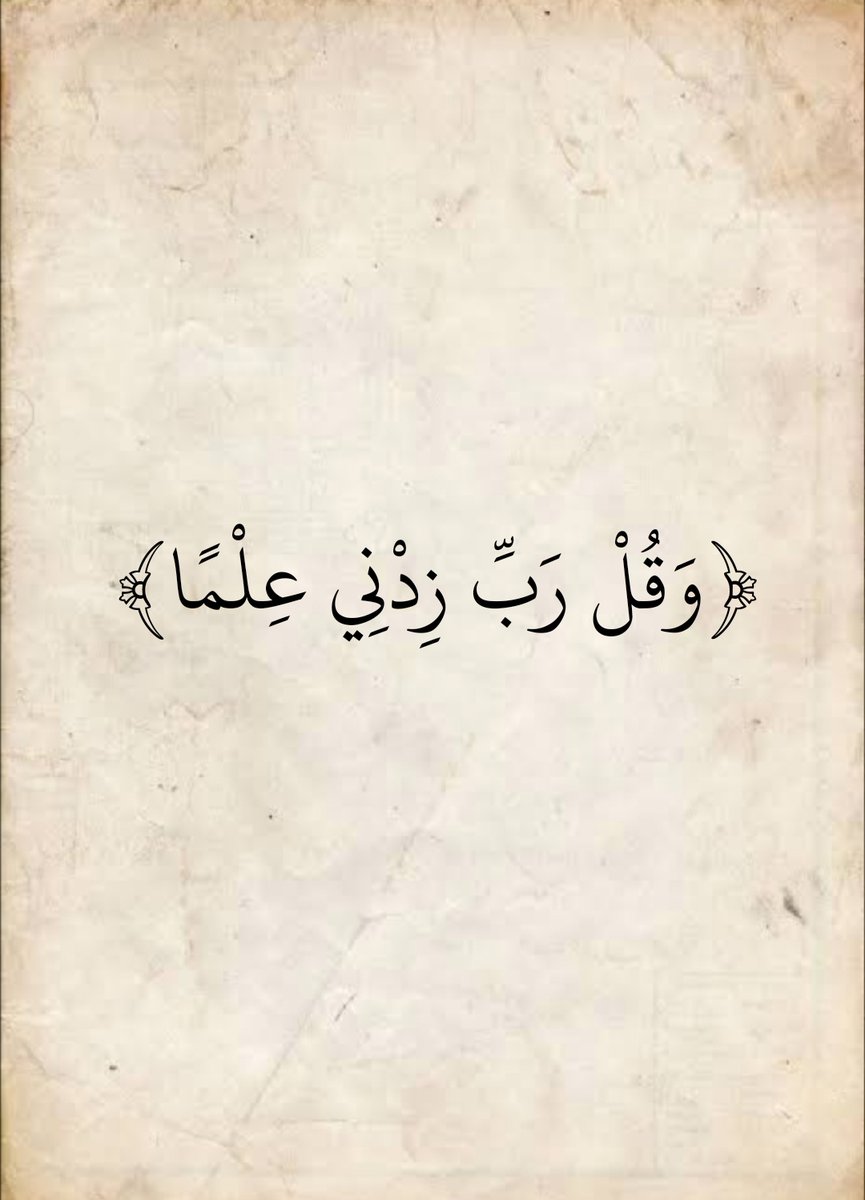 ﴿وَقُلْ رَبِّ زِدْنِي عِلْمًا﴾